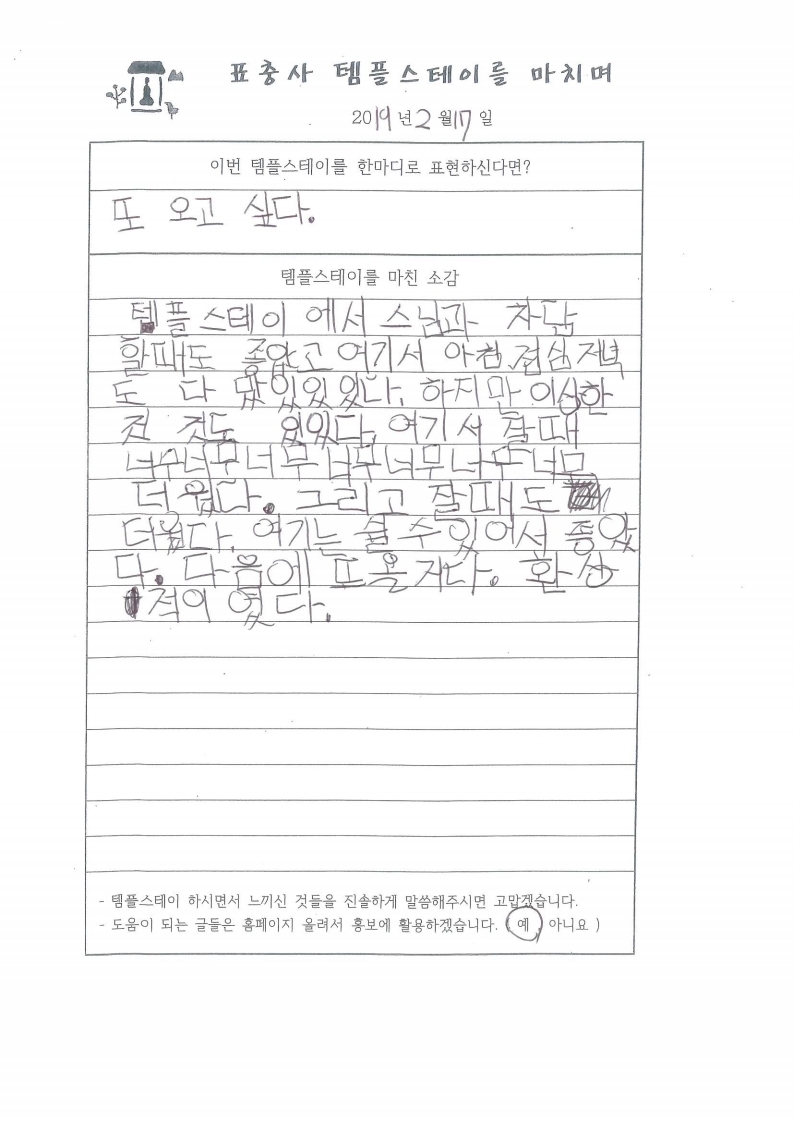 표충사 템플스테이를 마치며
2019년 2월 17일
이번 템플스테이를 한마디로 표현하신다면?
또 오고 싶다.
템플스테이를 마친 소감
템플스테이 에서 스님과 차담
할때도 좋았고 여기서 아침,점심,저녁
도 다 맜있있있다. 하지만 이상한
것 것도 있있다. 여기서 잘 때
너무너무너무 너무너무너무너무
더웠다. 그리고 잘때도
더웠다. 여기는 쉴 수 있어서 좋았
다. 다음에 또 올거다. 환상
적이 였다.
- 템플스테이 하시면서 느끼신 것들을 진솔하게 말씀해주시면 고맙겠습니다.
- 도움이 되는 글들은 홈페이지 올려서 홍보에 활용하겠습니다. ( 예, 아니요 )